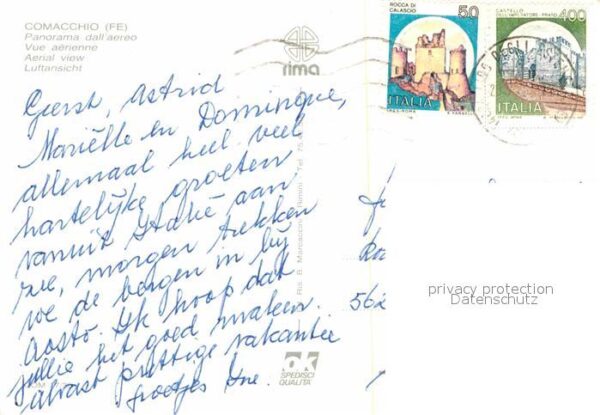 COMACCHIO (FE)
Panorama dall'aereo
Vue aérienne
Aerial view
Luftansicht
rima
ROCCA DI CALASCIO
50
ITALIA
CASTELLO DELL'IMPERATORE - PRATO
400
ITALIA
Geert, Astrid
Mariëlle en Dominique,
allemaal heel veel
hartelijke groeten
vanuit Italië aan
zee, morgen trekken
we de bergen in bij
Aosto. Ik hoop dat
jullie het goed maken.
alvast prettige vakantie
Groetjes Ine.
Rimini Tel.
562
privacy protection
Datenschutz
SPEDISCI
QUALITÀ